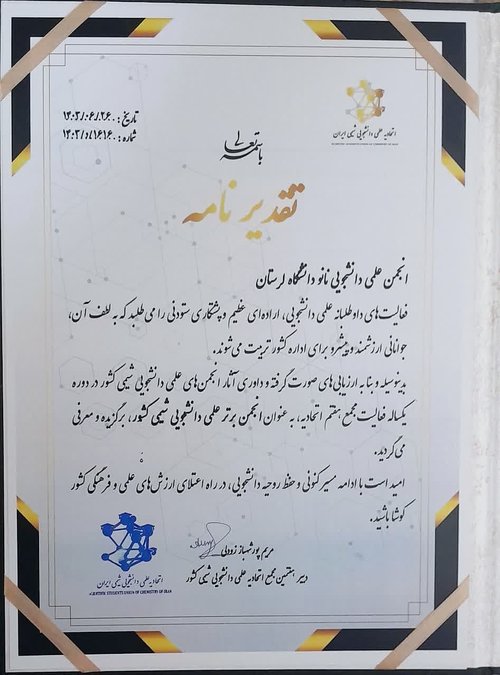 تاریخ : ۱۴۰۳/۰۶/۲۶
شماره : ۱۴۰۳/د/۱۶۱۶
اتحادیه علمی دانشجویی شیمی ایران
SCIENTIFIC STUDENTS UNION OF CHEMISTRY OF IRAN
باسمه تعالی
تقدیر نامه
انجمن علمی دانشجویی نانو دانشگاه لرستان
فعالیت‌های داوطلبانه علمی دانشجویی، اراده‌ای عظیم و پشتکاری ستودنی را می‌طلبد که به لطف آن،
جوانانی ارزشمند و پیشرو برای اداره کشور تربیت می‌شوند.
بدینوسیله و بنا به ارزیابی‌های صورت گرفته و داوری آثار انجمن‌های علمی دانشجویی شیمی کشور در دوره
یکساله فعالیت مجمع هفتم اتحادیه، به عنوان انجمن برتر علمی دانشجویی شیمی کشور، برگزیده و معرفی
می‌گردید.
امید است با ادامه مسیر کنونی و حفظ روحیه دانشجویی، در راه اعتلای ارزش‌های علمی و فرهنگی کشور
کوشا باشید.
مریم پورشهباز زودلی
دبیر هفتمین مجمع اتحادیه علمی دانشجویی شیمی کشور
اتحادیه علمی دانشجویی شیمی ایران
SCIENTIFIC STUDENTS UNION OF CHEMISTRY OF IRAN